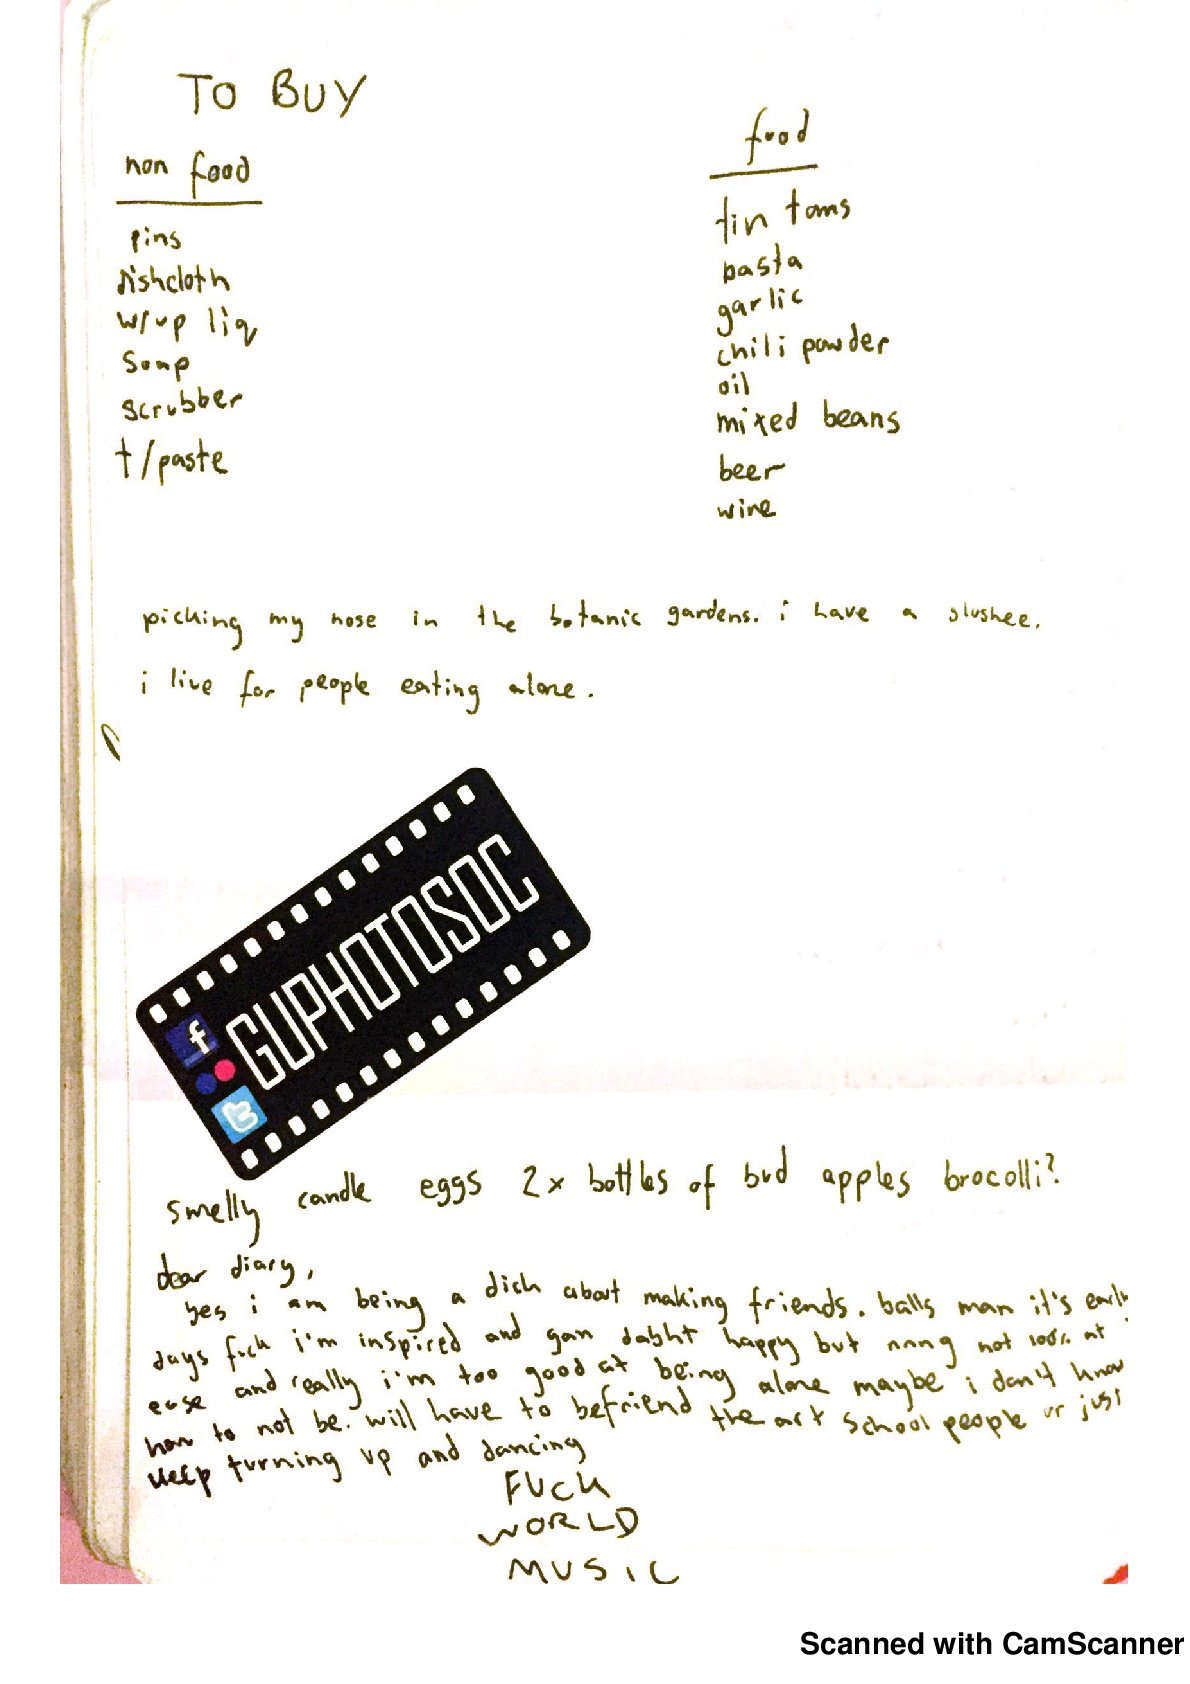 TO BUY
non food
pins
dishcloth
w/up liq
soap
scrubber
t/paste
food
tin toms
pasta
garlic
chili powder
oil
mixed beans
beer
wine
picking my nose in the botanic gardens. i have a slushee.
i live for people eating alone.
GUPHOTOSOC
smelly candle eggs 2x bottles of bud apples brocolli?
dear diary,
yes i am being a dick about making friends. balls man it's early
days fuck i'm inspired and gan dabht happy but nnng not 100% at
ease and really i'm too good at being alone maybe i don't know
how to not be. will have to befriend the art school people or just
keep turning up and dancing
FUCK
WORLD
MUSIC
Scanned with CamScanner